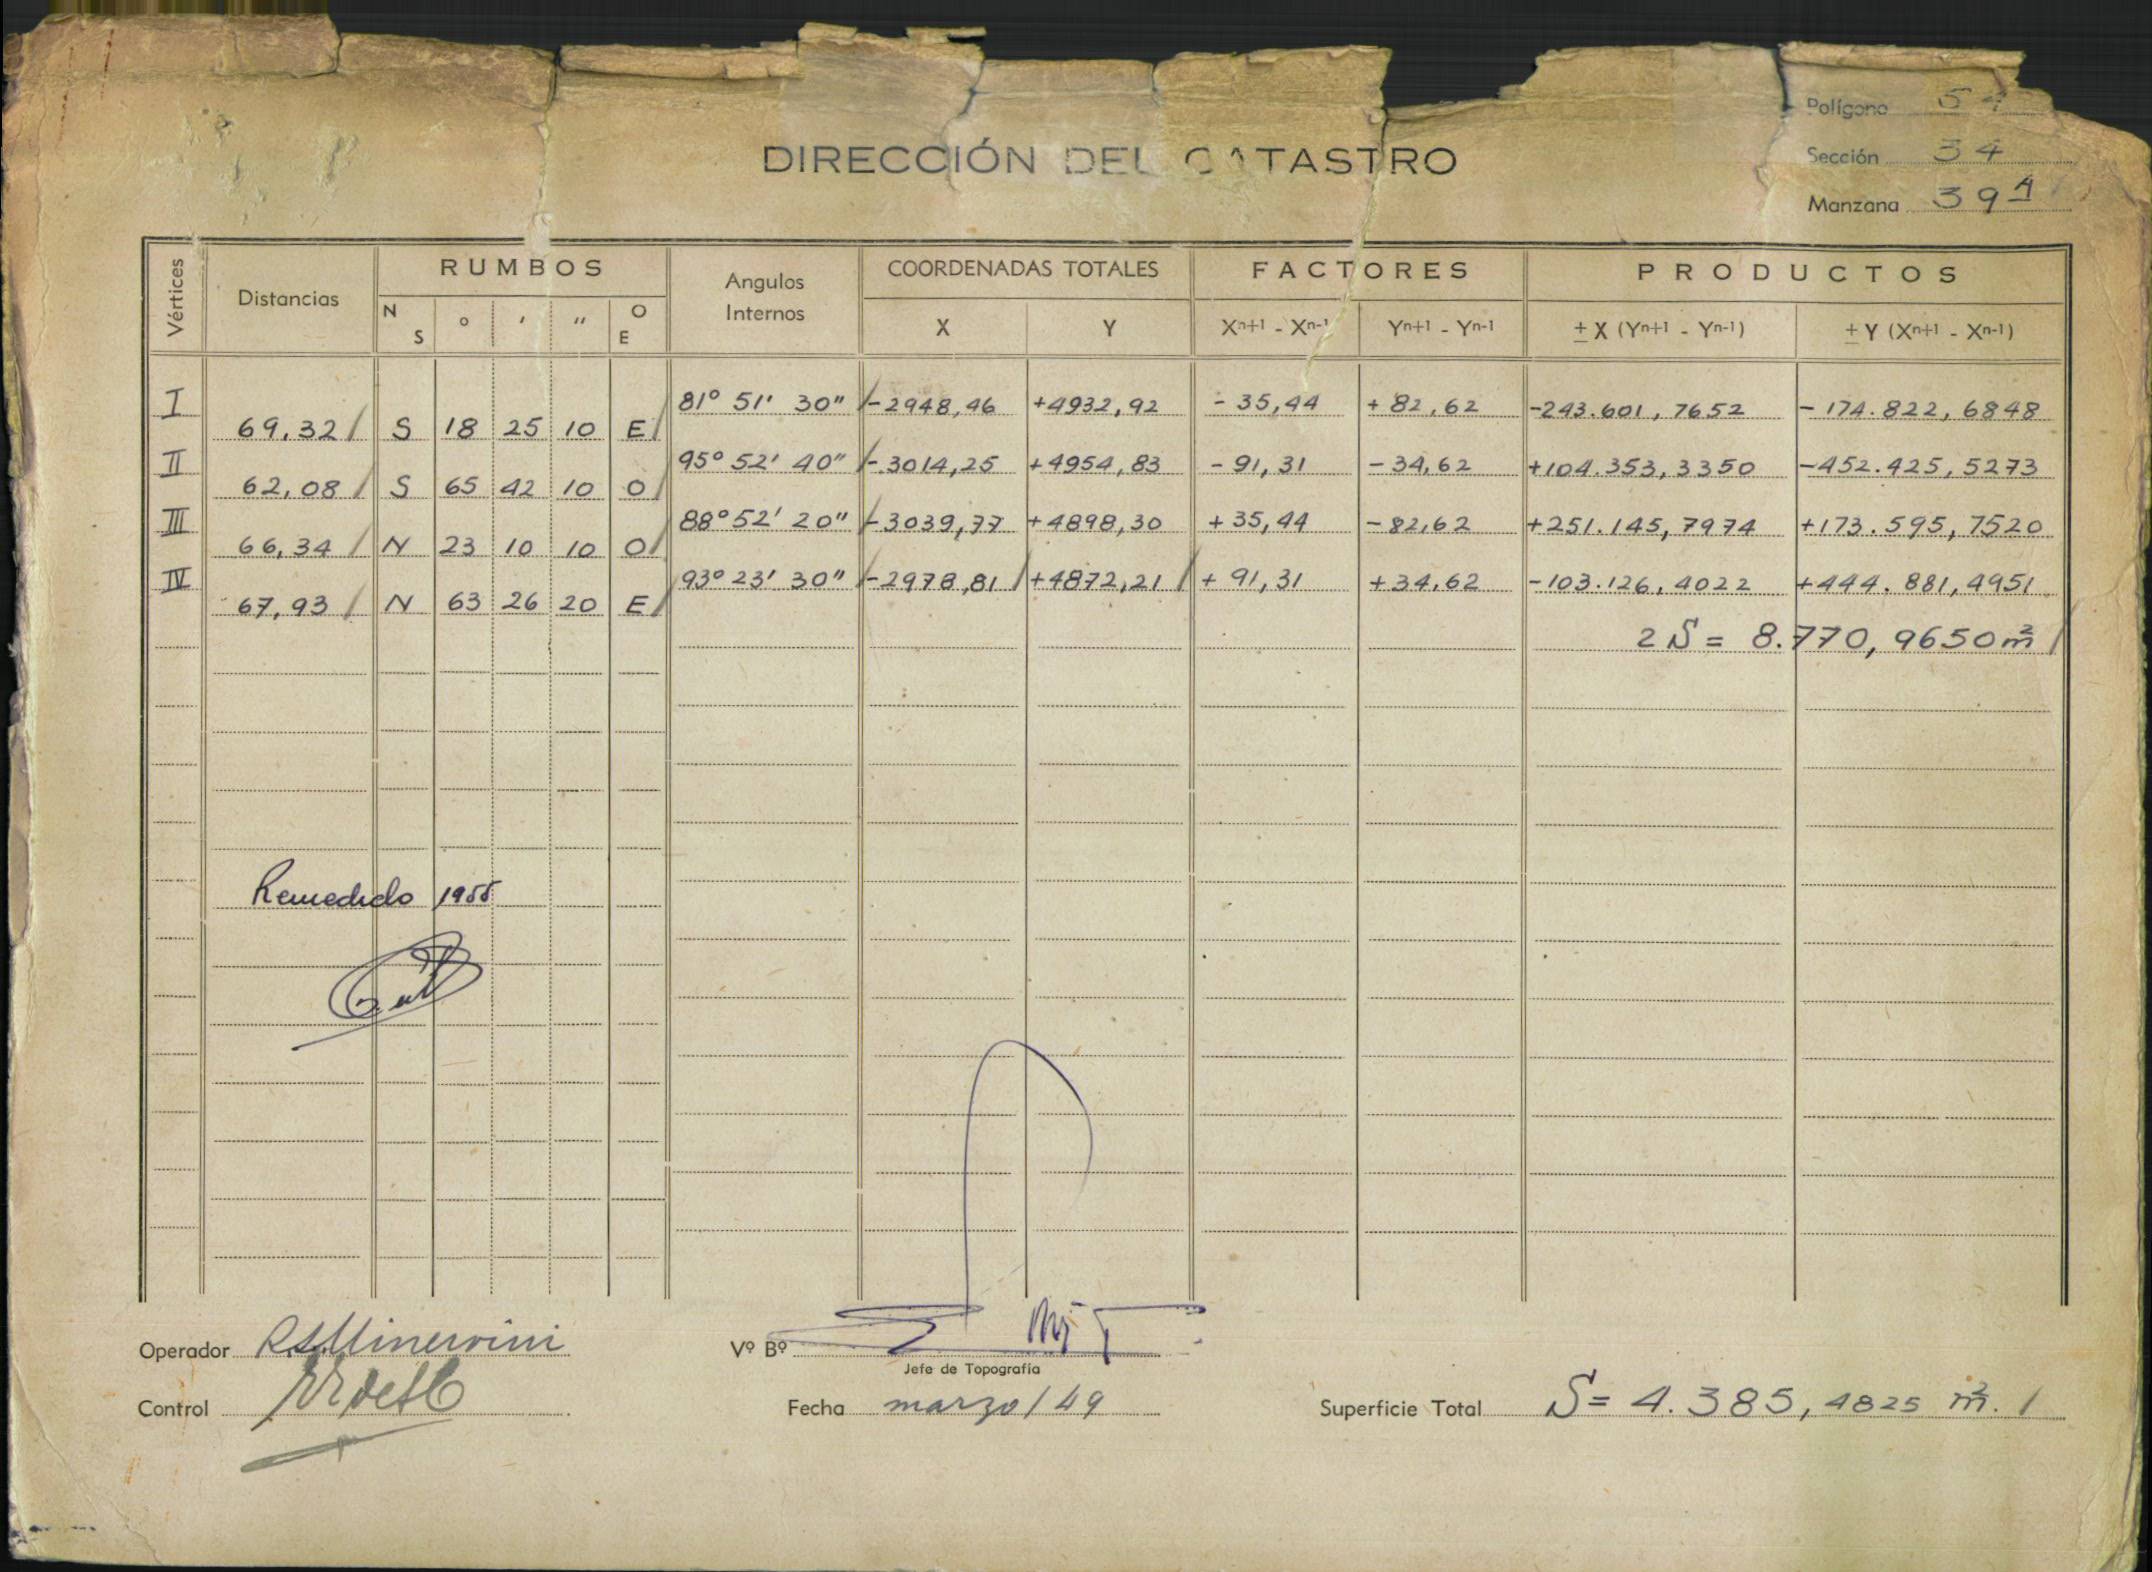 Polígono 54
DIRECCIÓN DEL CATASTRO
Sección 34
Manzana 39 A
Vértices Distancias RUMBOS Angulos Internos COORDENADAS TOTALES FACTORES PRODUCTOS
N S ° ' '' O E X Y Xn+1 - Xn-1 Yn+1 - Yn-1 ± X (Yn+1 - Yn-1) ± Y (Xn+1 - Xn-1)
I 81° 51' 30" -2948,46 +4932,92 - 35,44 + 82,62 -243.601,7652 - 174.822,6848
69,32 S 18 25 10 E
II 95° 52' 40" -3014,25 +4954,83 - 91,31 - 34,62 +104.353,3350 -452.425,5273
62,08 S 65 42 10 O
III 88° 52' 20" -3039,77 +4898,30 + 35,44 - 82,62 +251.145,7974 +173.595,7520
66,34 N 23 10 10 O
IV 93° 23' 30" -2978,81 +4872,21 + 91,31 + 34,62 -103.126,4022 +444.881,4951
67,93 N 63 26 20 E
2 S = 8.770,9650 m²
Remedido 1955
Operador R.S. Minervini
Vº Bº
Jefe de Topografía
Control
Fecha marzo/49
Superficie Total S = 4.385,4825 m².